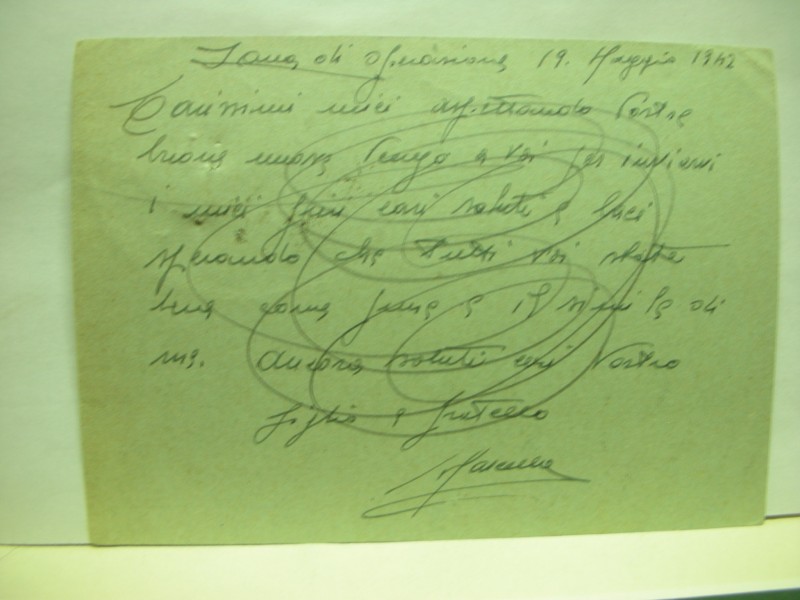 Zona di operazione 19. Maggio 1942
Carissimi miei aspettando Vostre
buone nuove Vengo a voi per inviarvi
i miei più cari saluti e baci
sperando che tutti voi state
bene come pure e il simile di
me. Ancora saluti cari Vostro
figlio e fratello